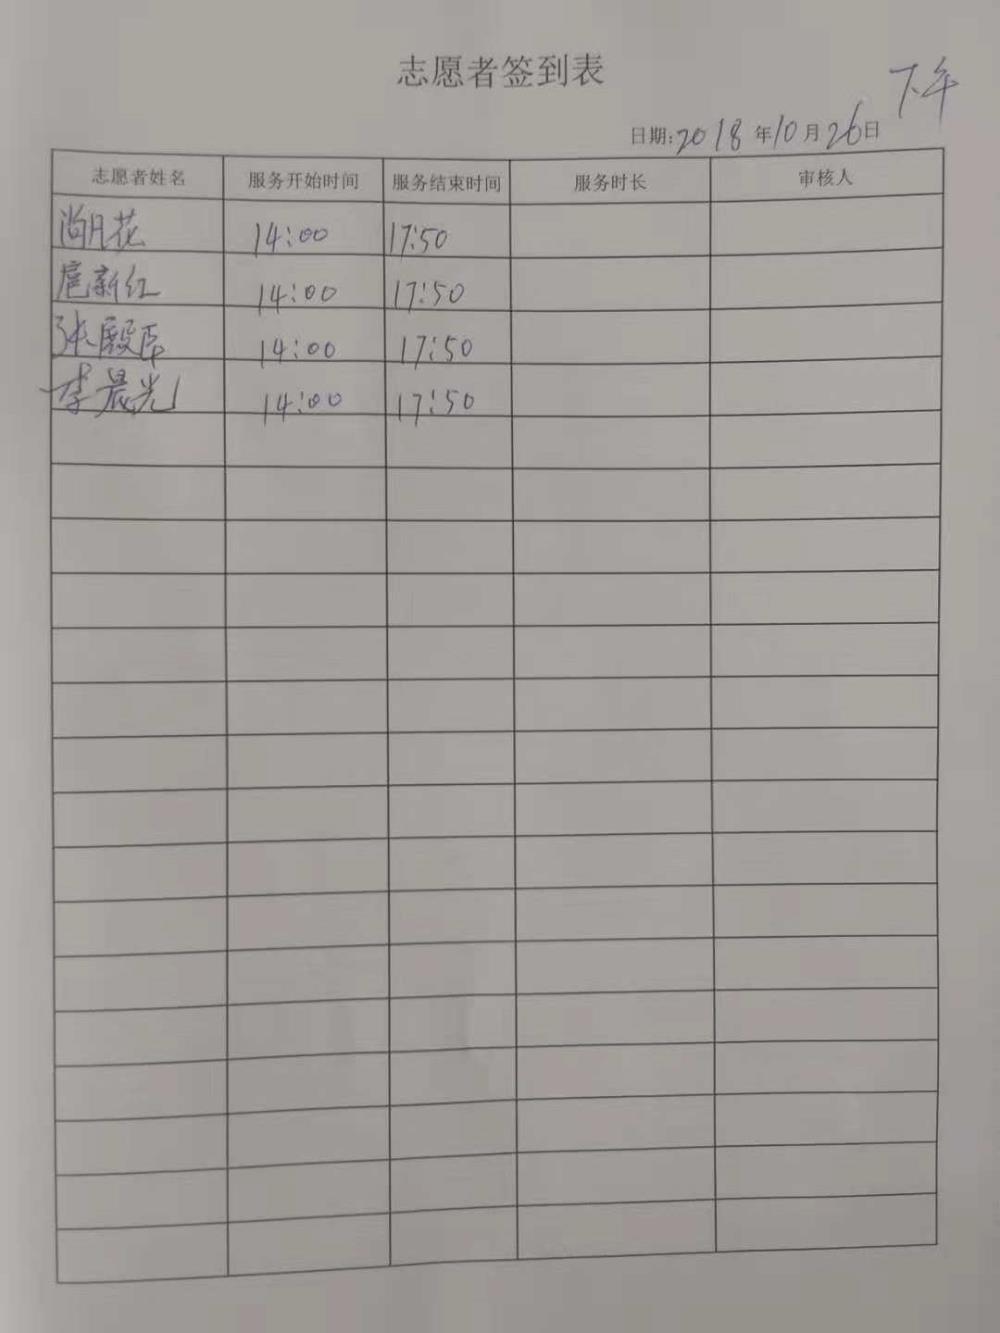 志愿者签到表
下午
日期:2018年10月26日
志愿者姓名 服务开始时间 服务结束时间 服务时长 审核人
尚月花 14:00 17:50
扈新红 14:00 17:50
张殿臣 14:00 17:50
李晨光 14:00 17:50